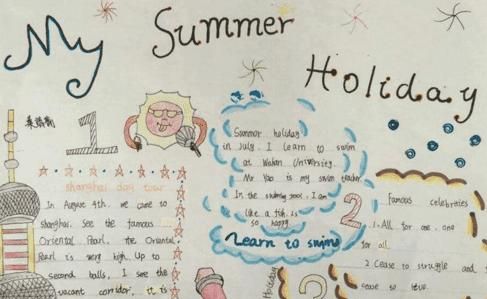 My Summer Holiday
1
shanghai day tour
In August 4th, we came to
shanghai. See the famous
Oriental Pearl. the Oriental
Pearl is very high. Up to
second balls, I see the
vacant corridor. it is
Summer holiday
in July. I learn to swim
at Wuhan University.
Mr Yao is my swim teacher
In the swimming pool. I am
like a fish. is
so happy
Learn to swim
2
Famous celebrities
1. All for one. one
for all.
2. Cease to struggle and
cease to live.
Holiday
3